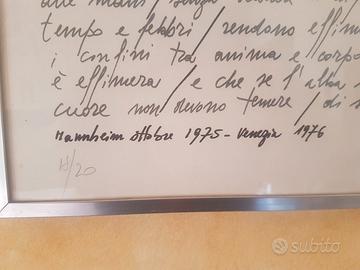 tempo e febbri / rendono effim
i confini tra anima e corpo
è effimera / e che se l'alba
cuore non devono temere / di s
Mannheim ottobre 1975 - Venezia 1976
/20
subito